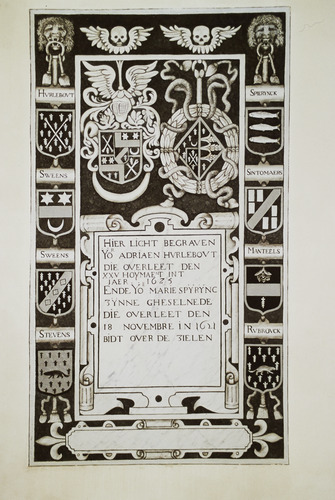 HVRLEBOVT
SPIERYNCK
SWEENS
SINTOMAERS
SWEENS
MANTEELS
STEVENS
RVBROVCK
HIER LICHT BEGRAVEN
ADRIAEN HVRLEBOVT
DIE OVERLEET DEN
XXV HOYMAET INT
JAER 1625
ENDE MARIE SPYRYNC
ZYNNE GHESELNEDE
DIE OVERLEET DEN
18 NOVEMBRE IN
BIDT OVER DE ZIELEN